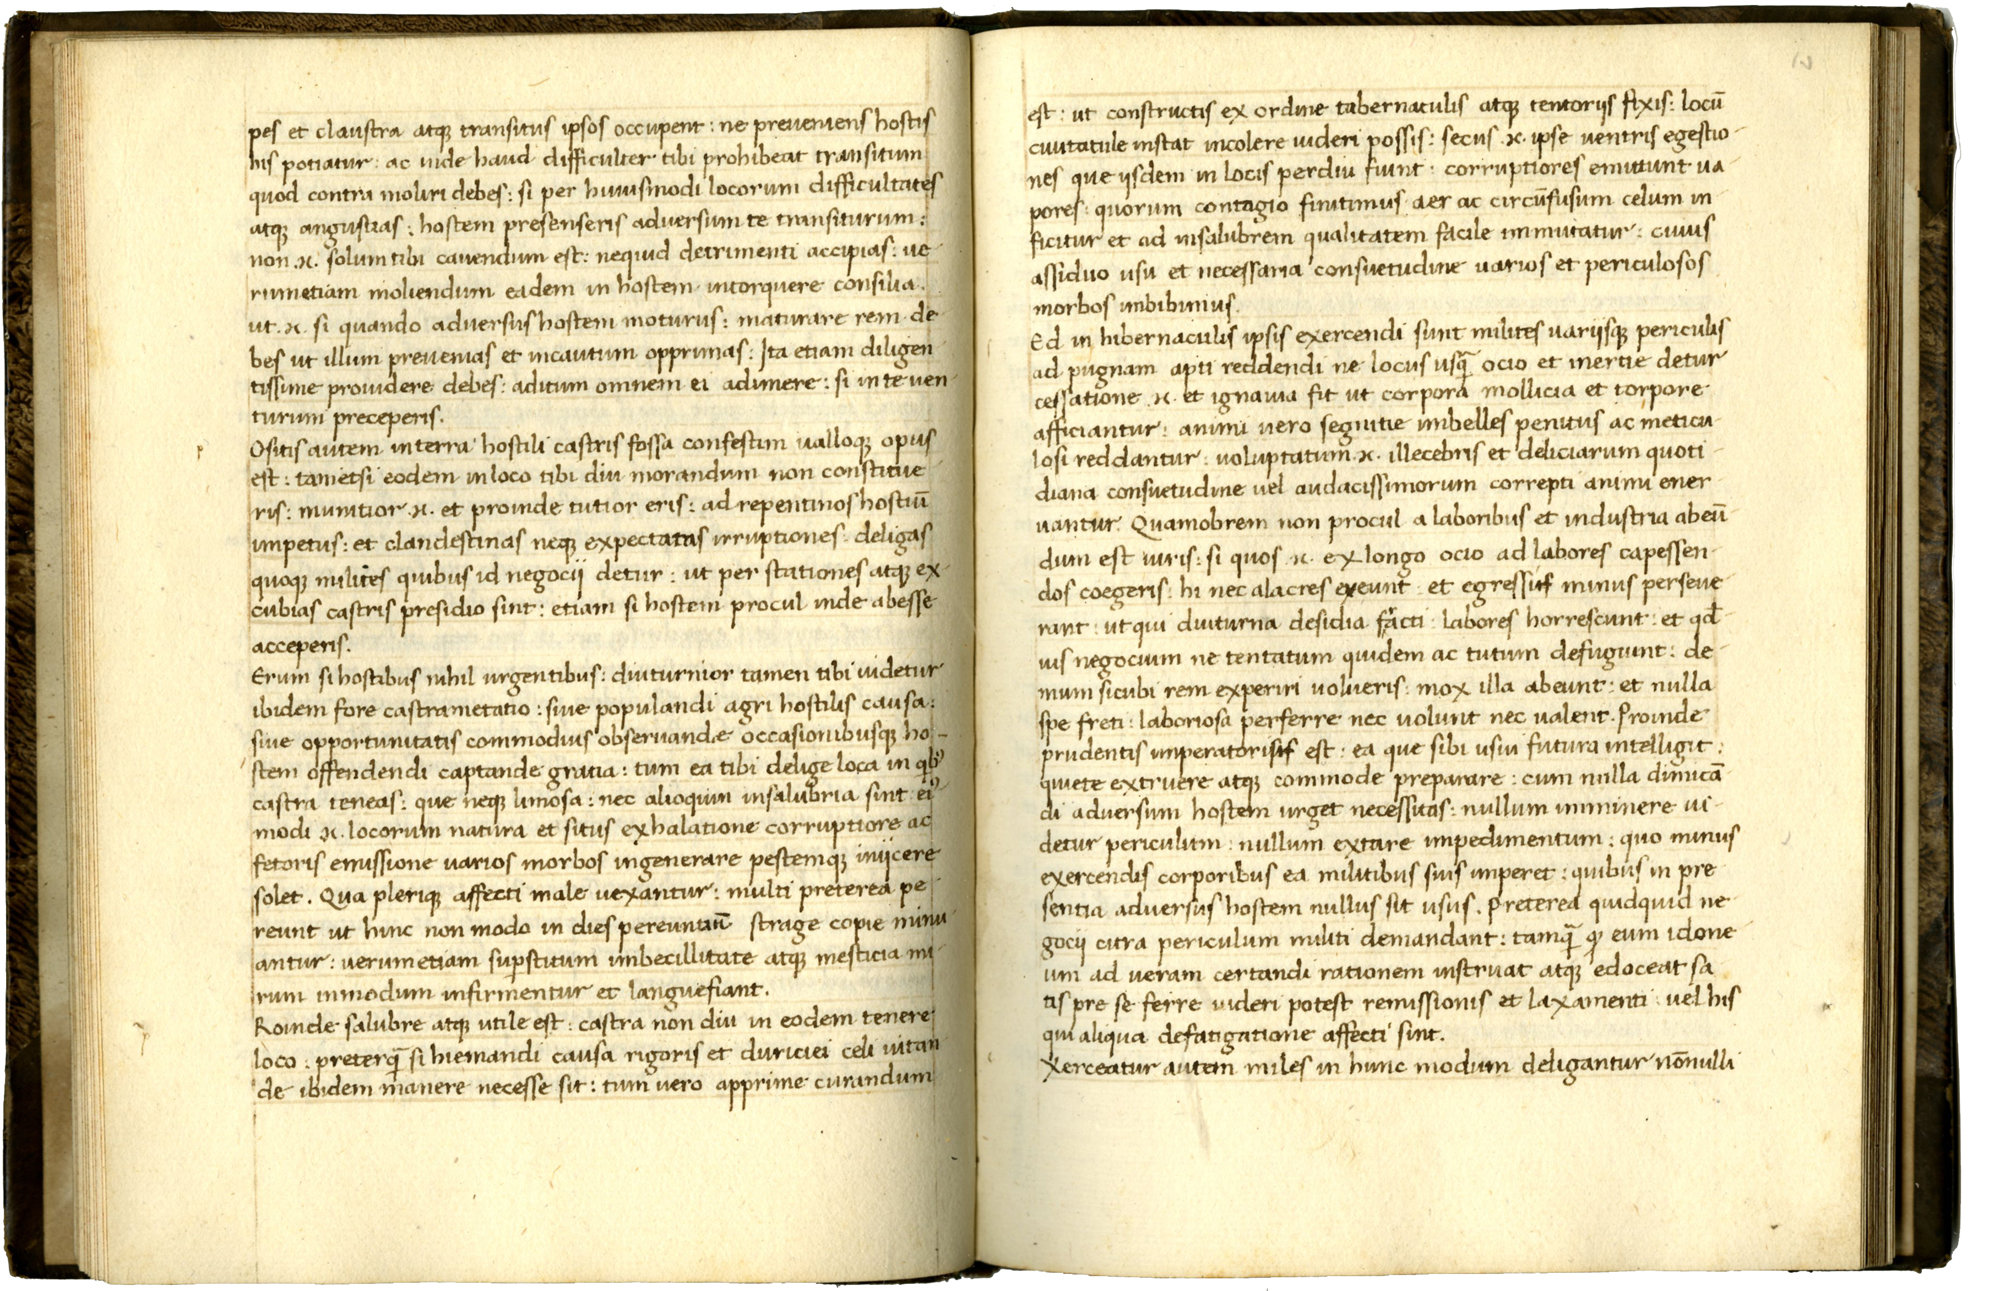 pes et claustra atqꝫ transitus ipsos occupent : ne preveniens hostis
his potiatur : ac inde haud difficulter tibi prohibeat transitum
quod contra moliri debes : si per huiusmodi locorum difficultates
atqꝫ angustias : hostem presenseris adversum te transiturum :
non .n. solum tibi cavendum est : nequid detrimenti accipias : ve
rumetiam moliendum eadem in hostem intorquere consilia .
ut .n. si quando adversus hostem moturus : maturare rem de
bes ut illum prevenias et incautum opprimas : Ita etiam diligen
tissime providere debes : aditum omnem ei adimere : si in te ven
turum preceperis .
Ositis autem in terra hostili castris fossa confestim valloqꝫ opus
est : tametsi eodem in loco tibi diu morandum non constitue
ris : munitior .n. et proinde tutior eris : ad repentinos hostiū
impetus : et clandestinas neqꝫ expectatas irruptiones : deligas
quoqꝫ milites quibus id negocij detur : ut per stationes atqꝫ ex
cubias castris presidio sint : etiam si hostem procul inde abesse
acceperis .
Erum si hostibus nihil urgentibus : diuturnior tamen tibi videtur
ibidem fore castrametatio : sive populandi agri hostilis causa :
sive opportunitatis commodius observandæ occasionibusqꝫ ho-
stem offendendi captande gratia : tum ea tibi delige loca in qibꝰ
castra teneas : que neqꝫ limosa : nec alioquin insalubria sint : eiꝰ
modi .n. locorum natura et situs exhalatione corruptiore ac
fetoris emissione varios morbos ingenerare pestemqꝫ iniicere
solet . Qua pleriqꝫ affecti male vexantur : multi preterea pe
reunt ut hinc non modo in dies pereuntiū strage copie minu
antur : verumetiam suꝑstitum imbecillitate atqꝫ mesticia mi
rum inmodum infirmentur et languefiant .
Roinde salubre atqꝫ utile est : castra non diu in eodem tenere
loco : preterq̄ si hiemandi causa rigoris et duriciei celi vitan
de ibidem manere necesse sit : tum vero apprime curandum
est : ut constructis ex ordine tabernaculis atqꝫ tentorijs fixis : locū
civitatule instat incolere videri possis : secus .n. ipse ventris egestio-
nes que ijsdem in locis perdiu fiunt : corruptiores emittunt va
pores : quorum contagio finitimus aer ac circūfusum celum in
ficitur et ad insalubrem qualitatem facile immutatur : cuius
assiduo usu et necessaria consuetudine varios et periculosos
morbos imbibimus .
Ed in hibernaculis ipsis exercendi sunt milites varijsqꝫ periculis
ad pugnam apti reddendi ne locus usq̄ ocio et inertie detur
cessatione .n. et ignavia fit ut corpora mollicia et torpore
afficiantur : animi vero segnitie imbelles penitus ac meticu
losi reddantur : voluptatum .n. illecebris et deliciarum quoti
diana consuetudine vel audacissimorum correpti animi ener
vantur . Quamobrem non procul a laboribus et industria abeū
dum est viris : si quos .n. ex longo ocio ad labores capessen
dos coegeris : hi nec alacres exeunt : et egressi minus perseve
rant : ut qui diuturna desidia fracti : labores horrescunt : et qd
vis negocium ne tentatum quidem ac tutum defugiunt : de
mum sicubi rem experiri volueris : mox illa abeunt : et nulla
spe freti : laboriosa perferre nec volunt nec valent . Proinde
prudentis imperatoris est : ea que sibi usui futura intelligit :
quiete extruere atqꝫ commode preparare : cum nulla dimicā
di adversum hostem urget necessitas : nullum imminere vi-
detur periculum : nullum extare impedimentum : quo minus
exercendis corporibus ea militibus suis imperet : quibus in pre
sentia adversus hostem nullus sit usus . Preterea quidquid ne
gocij citra periculum militi demandant : tamq̄ qꝫ eum idone
um ad veram certandi rationem instruat atqꝫ edoceat sa
tis pre se ferre videri potest remissionis et laxamenti : vel his
qui aliqua defatigatione affecti sint .
Xerceatur autem miles in hunc modum deligantur nōnulli